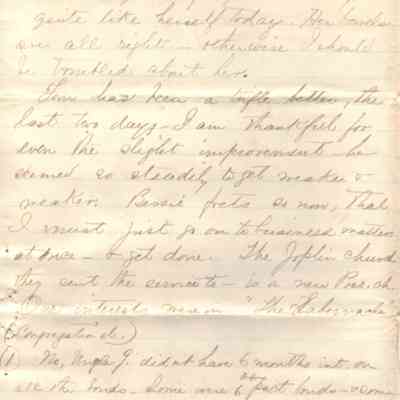 quite like herself today. Her bowels
are all right — otherwise I should
be troubled about her.
Tom has been a trifle better, the
last two days — I am thankful for
even the slight improvement — he
seemed so steadily to get weaker &
weaker. Bessie frets so now, that
I must just go on to business matters
at once — & get done. The Joplin church
they sent the services to — is a new Pres. ch.
Our interests were in "The Tabernacle"
(Congregational.)
(1) No, Uncle G. did not have 6 months int. on
all the bonds — Some were 6 part bonds — & some